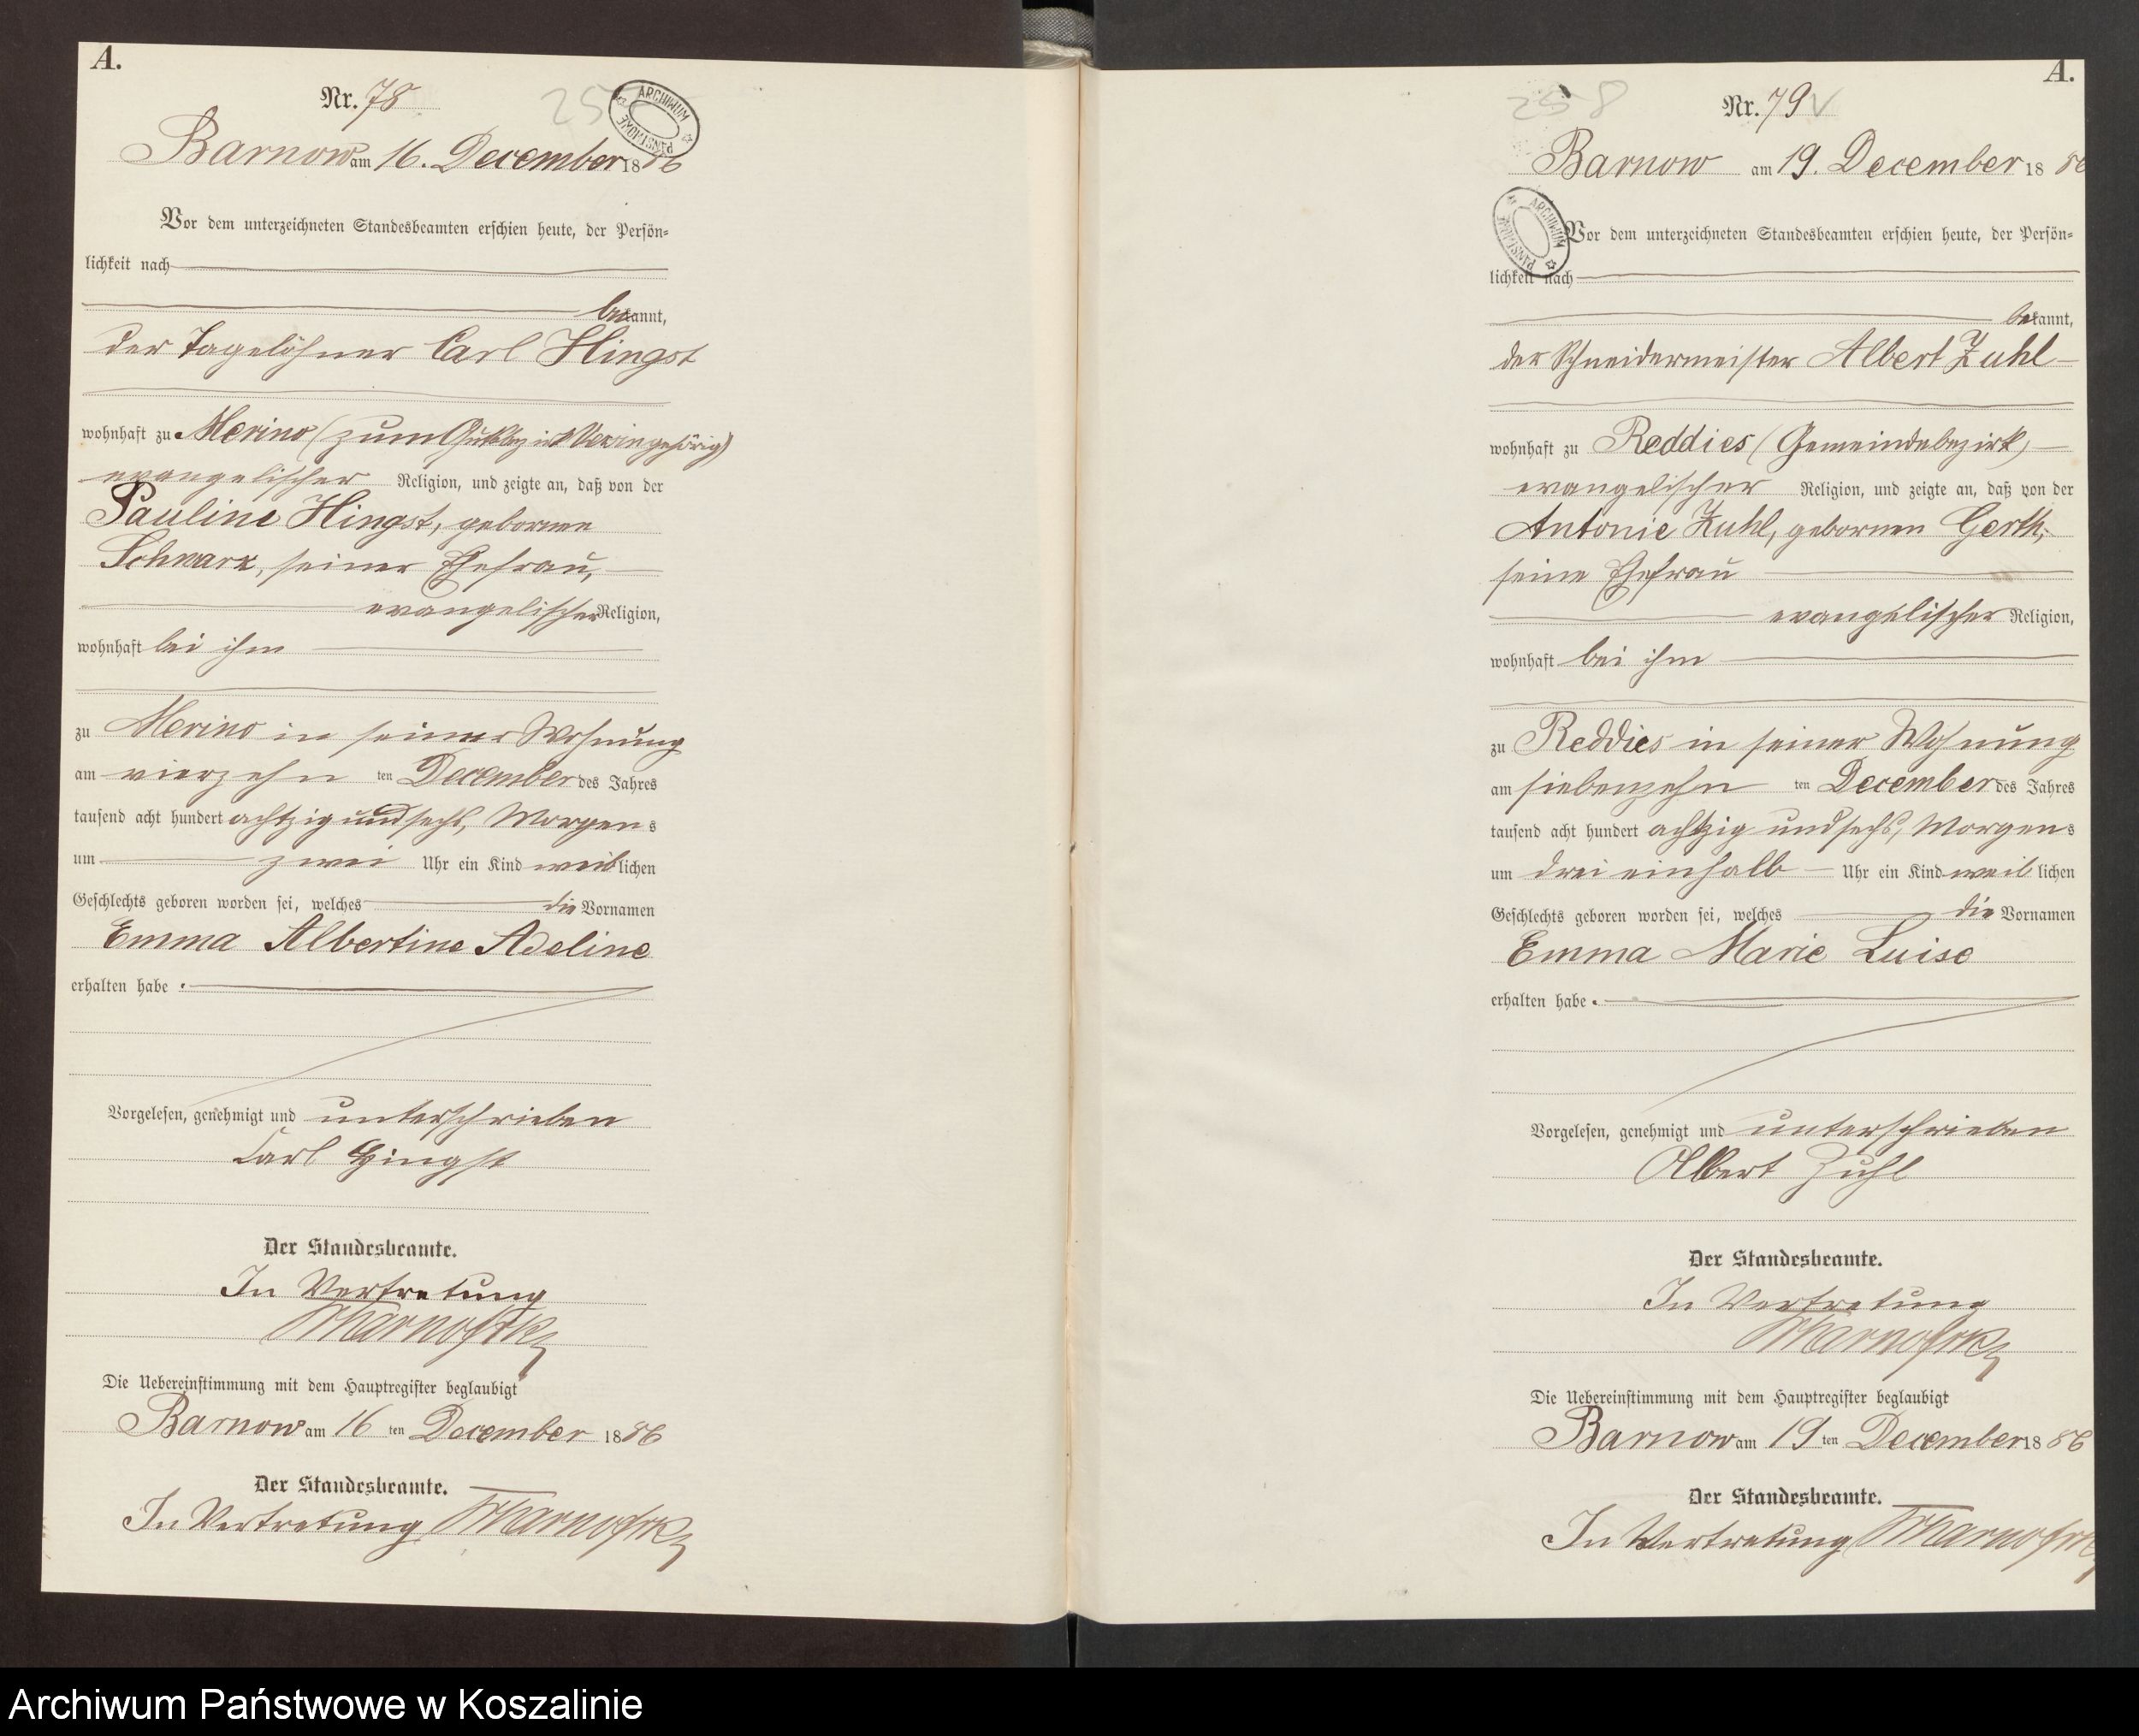 A.
Nr. 78
25
ARCHIWUM PAŃSTWOWE
Barnow am 16. December 1886
Vor dem unterzeichneten Standesbeamten erschien heute, der Persön-
lichkeit nach
bekannt,
der Tagelöhner Carl Hingst
wohnhaft zu Merino (zum gehörig)
evangelischer Religion, und zeigte an, daß von der
Pauline Hingst, gebornen
Schwarz, seiner Ehefrau,
evangelischer Religion,
wohnhaft bei ihm
zu Merino in seiner Wohnung
am vierzehn ten December des Jahres
tausend acht hundert achtzig und sechs, Morgens
um zwei Uhr ein Kind weiblichen
Geschlechts geboren worden sei, welches die Vornamen
Emma Albertine Adeline
erhalten habe.
Vorgelesen, genehmigt und unterschrieben
Carl Hingst
Der Standesbeamte.
In Vertretung
Die Uebereinstimmung mit dem Hauptregister beglaubigt
Barnow am 16 ten December 1886
Der Standesbeamte.
In Vertretung
A.
258
Nr. 79
Barnow am 19. December 1886
ARCHIWUM PAŃSTWOWE
Vor dem unterzeichneten Standesbeamten erschien heute, der Persön-
lichkeit nach
bekannt,
der Schneidermeister Albert Zuhl
wohnhaft zu Reddies (Gemeindebezirk)
evangelischer Religion, und zeigte an, daß von der
Antonie Zuhl, gebornen Gerth,
seine Ehefrau
evangelischer Religion,
wohnhaft bei ihm
zu Reddies in seiner Wohnung
am siebenzehn ten December des Jahres
tausend acht hundert achtzig und sechs, Morgens
um drei einhalb Uhr ein Kind weiblichen
Geschlechts geboren worden sei, welches die Vornamen
Emma Marie Luise
erhalten habe.
Vorgelesen, genehmigt und unterschrieben
Albert Zuhl
Der Standesbeamte.
In Vertretung
Die Uebereinstimmung mit dem Hauptregister beglaubigt
Barnow am 19 ten December 1886
Der Standesbeamte.
In Vertretung
Archiwum Państwowe w Koszalinie